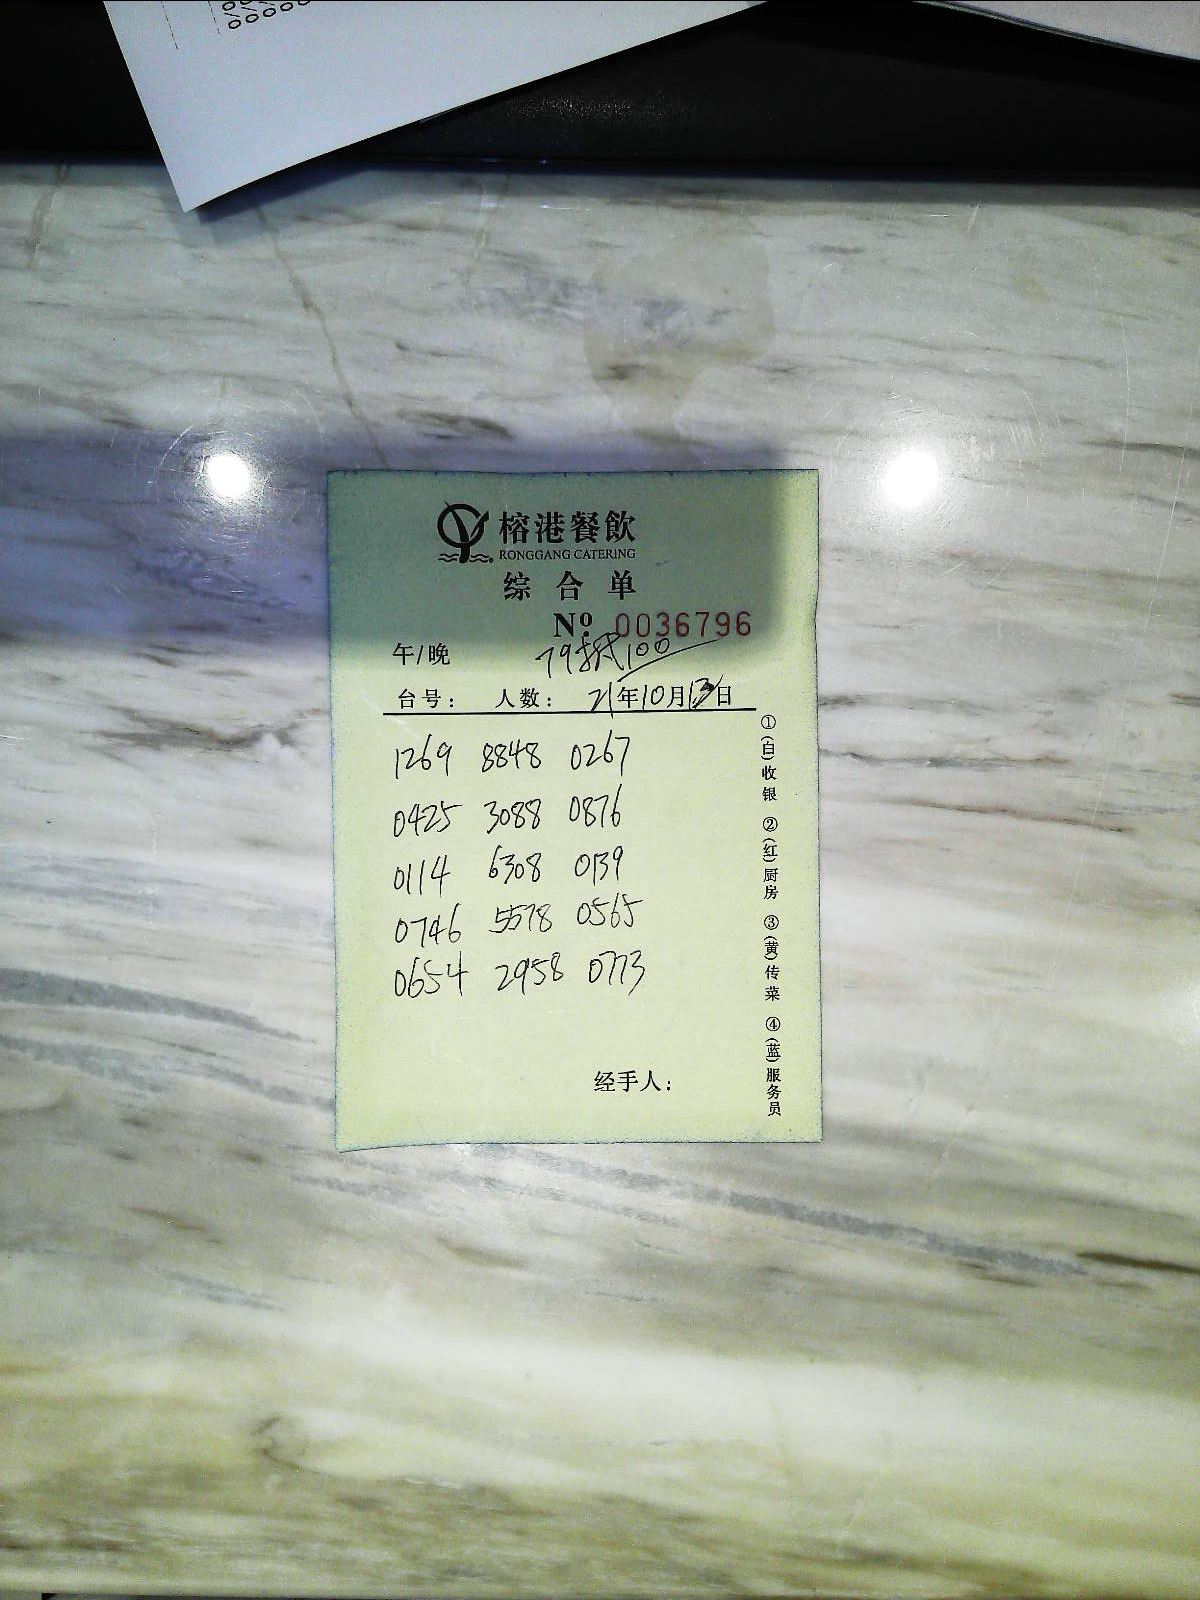 榕港餐飲
RONGGANG CATERING
综合单
Nº 0036796
午/晚 79抵100
台号: 人数: 21年10月13日
1269 8848 0267
0425 3088 0876
0114 6308 0139
0746 5578 0565
0654 2958 0773
经手人:
①(白)收银 ②(红)厨房 ③(黄)传菜 ④(蓝)服务员